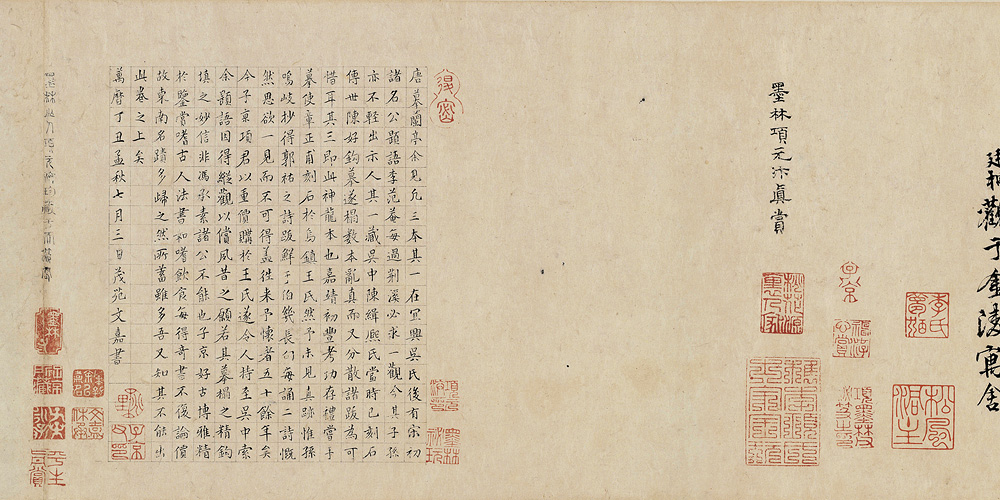 廷相觀于金陵寓舍
墨林項元汴真賞
唐摹蘭亭余見凡三本其一在宜興吳氏後有宋初
諸名公題語李范菴每過荆溪必求一觀今其子孫
亦不輕出示人其一藏吳中陳緝熙氏當時已刻石
傳世陳好鈎摹遂搨數本亂真而又分散諸跋為可
惜耳其三即此神龍本也嘉靖初豐考功存禮嘗手
摹使章正甫刻石於烏鎮王氏然予未見真跡惟孫
鳴岐抄得郭祐之詩跋鮮于伯幾長句每誦二詩慨
然思欲一見而不可得蓋往來予懷者五十餘年矣
今子京項君以重價購於王氏遂令人持至吳中索
余題語因得縱觀以償夙昔之願若其摹搨之精鈎
填之妙信非馮承素諸公不能也子京好古博雅精
於鑒賞嗜古人法書如嗜飲食每得奇書不復論價
故東南名蹟多歸之然所蓄雖多吾又知其不能出
此卷之上矣
萬曆丁丑孟秋七月三日茂苑文嘉書
李氏
松風
項墨林
墨林
子京